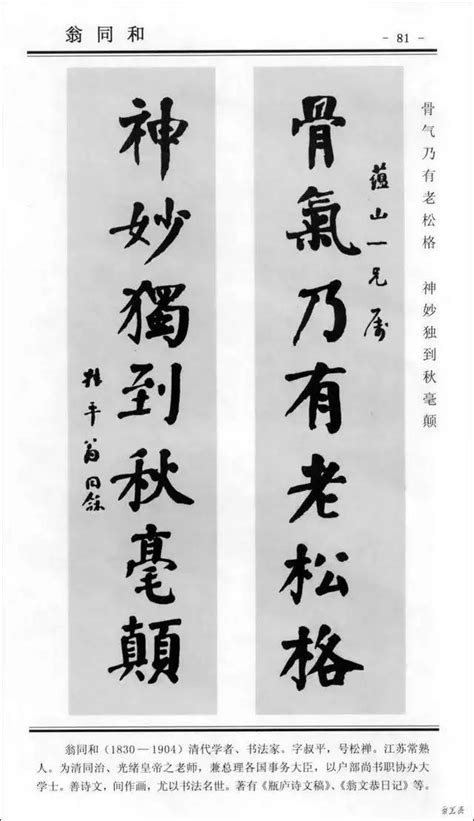 翁同和
- 81 -
骨气乃有老松格　神妙独到秋毫颠
骨氣乃有老松格
蕴山一兄属
神妙獨到秋毫顛
叔平翁同龢
翁同和（1830—1904）清代学者、书法家。字叔平，号松禅。江苏常熟
人。为清同治、光绪皇帝之老师，兼总理各国事务大臣，以户部尚书职协办大
学士。善诗文，间作画，尤以书法名世。著有《瓶庐诗文稿》、《翁文恭日记》等。